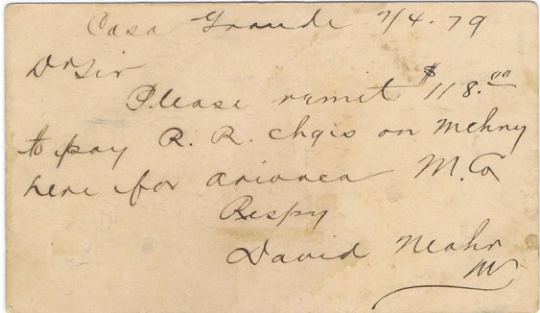 Casa Grande 7/4. 79
Dr Sir
Please remit $118.00
to pay R. R. chgis on Mchny
here for arivaca M. Co
Respy
David Neahr